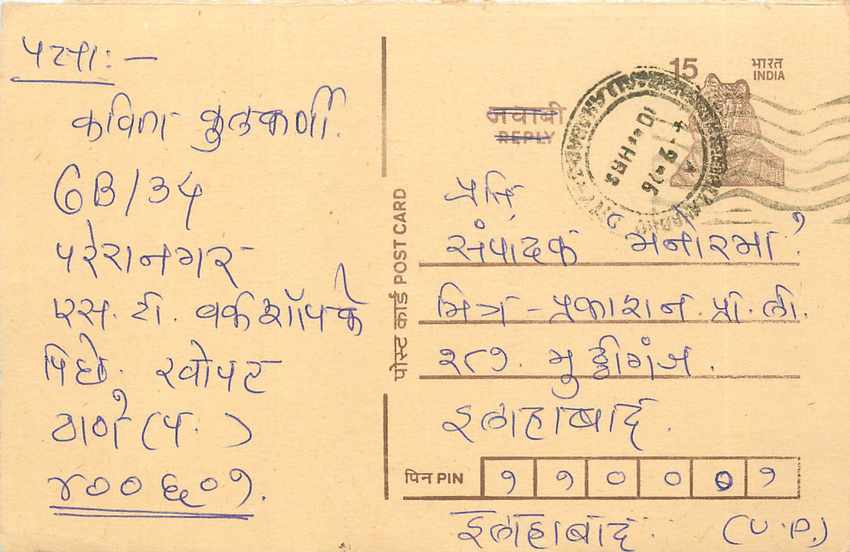 पत्ता: —
कविता कुलकर्णी.
GB/34
परेरानगर
एस. टी. वर्कशॉपके
पिछे. खोपट
ठाणे (प.)
४०० ६०१.
पोस्ट कार्ड POST CARD
15 भारत
INDIA
जवाबी
REPLY
10-- HRS
प्रति
संपादक मनोरमा,
मित्र - प्रकाशन. प्रा. ली.
२८१. मुठ्ठीगंज.
इलाहाबाद.
पिन PIN १ १ ० ० ० १
इलाहाबाद. (U.P.)